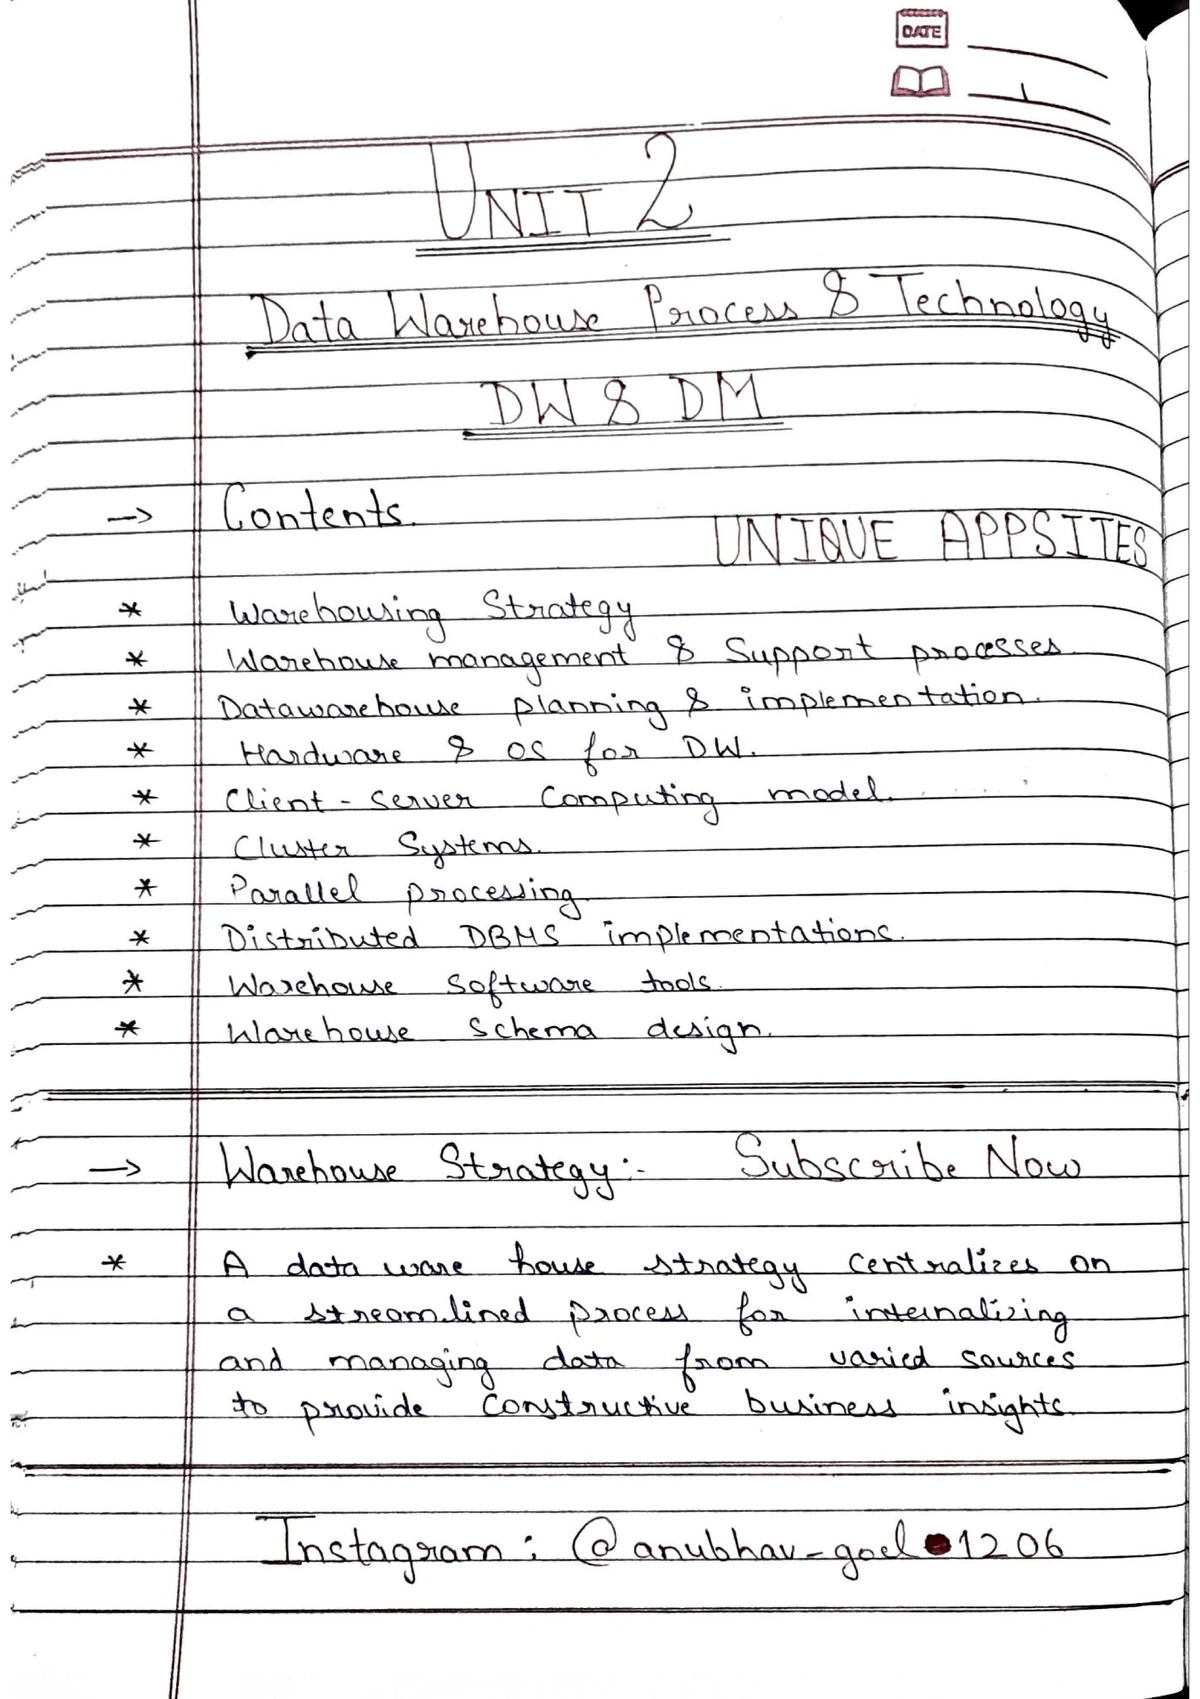 DATE
UNIT 2
Data Warehouse Process & Technology
DW & DM
→ Contents.
UNIQUE APPSITES
* Warehousing Strategy
* Warehouse management & Support processes.
* Datawarehouse planning & implementation.
* Hardware & OS for DW.
* Client-server Computing model.
* Cluster Systems.
* Parallel processing.
* Distributed DBMS implementations.
* Warehouse software tools.
* Warehouse schema design.
→ Warehouse Strategy:- Subscribe Now
* A data ware house strategy centralizes on
a streamlined process for internalizing
and managing data from varied sources
to provide constructive business insights.
Instagram : @anubhav_goel.1206